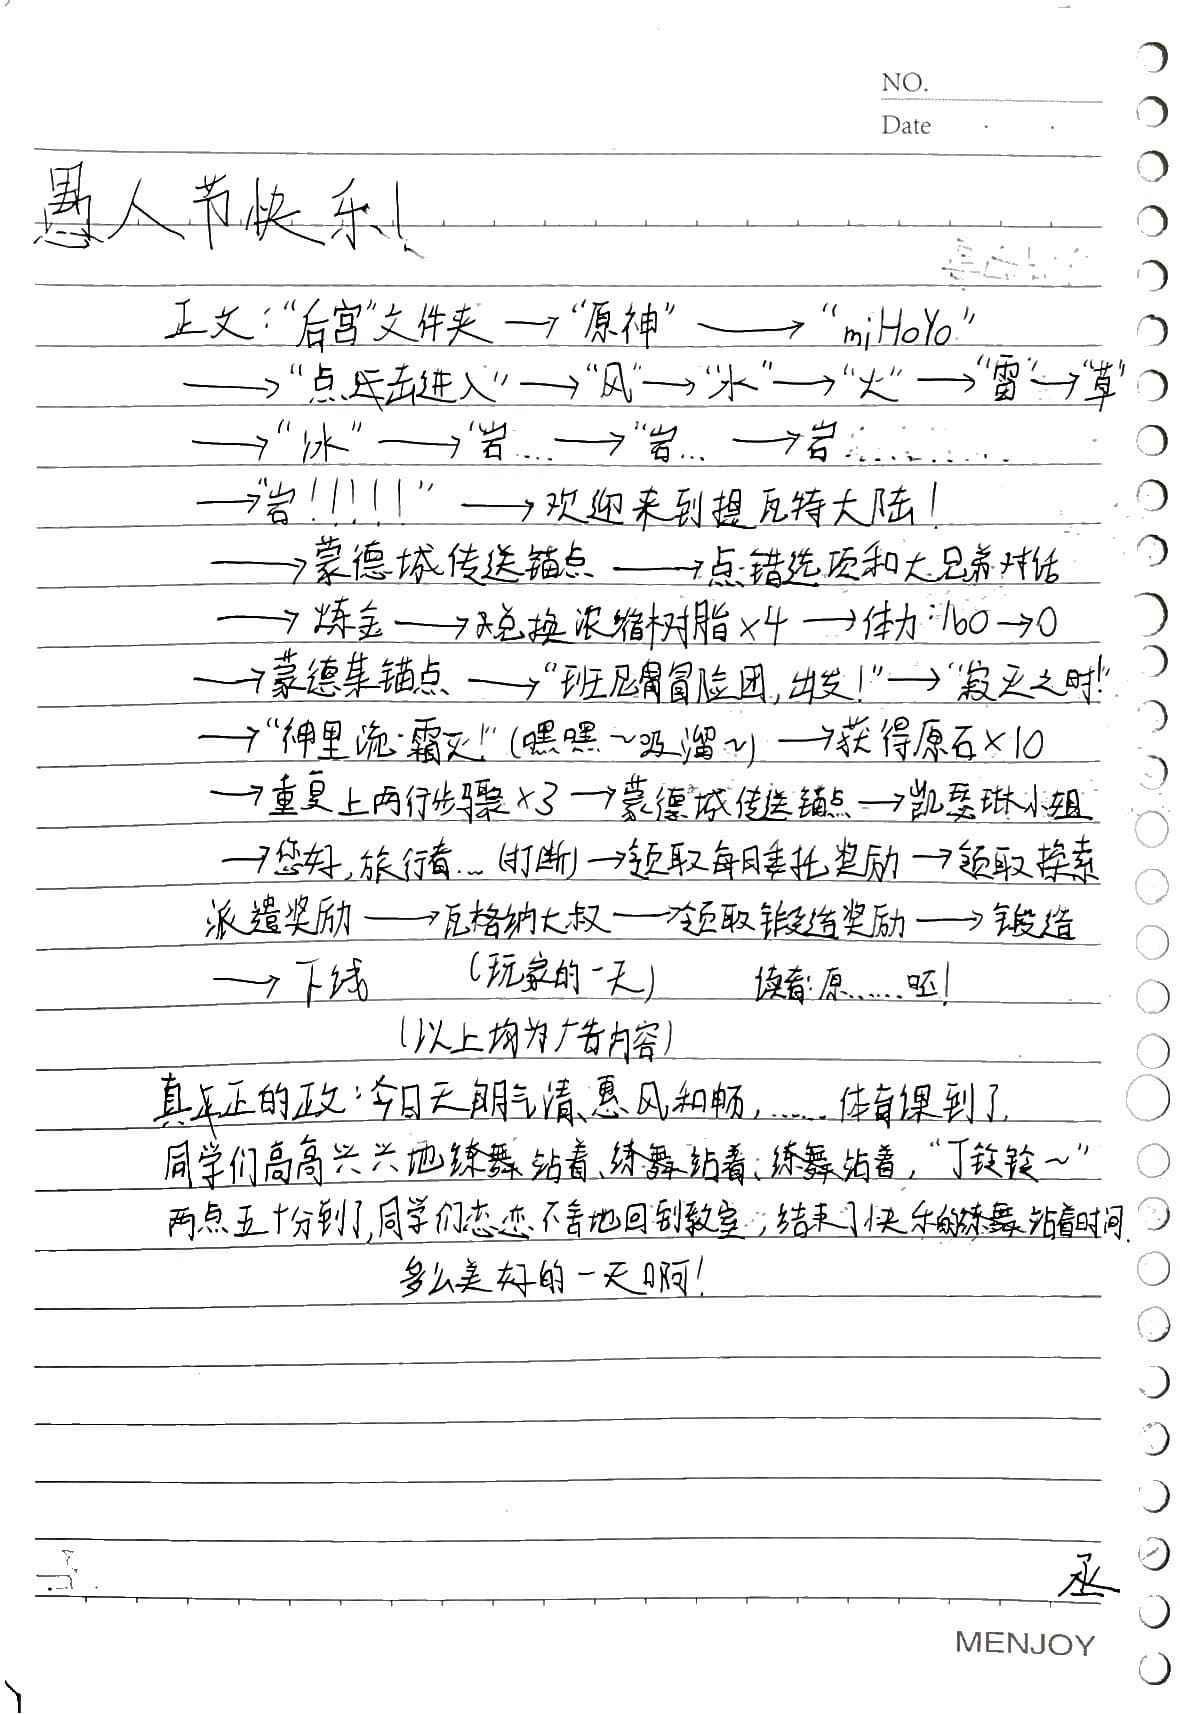 NO.
Date
愚人节快乐！
正文：“后宫”文件夹→“原神”→“miHoYo”
→“点击进入”→“风”→“水”→“火”→“雷”→“草”
→“冰”→“岩...→“岩...→岩............
→“岩！！！！！”→欢迎来到提瓦特大陆！
→蒙德城传送锚点→点错选项和大兄弟对话
→炼金→兑换浓缩树脂×4→体力：160→0
→蒙德集锚点→“班尼冒险团，出发！”→“寂灭之时！”
→“神里流·霜灭！”（嘿嘿～吸溜～）→获得原石×10
→重复上两行步骤×3→蒙德城传送锚点→凯瑟琳小姐
→您好，旅行者...（打断）→领取每日委托奖励→领取探索
派遣奖励→瓦格纳大叔→领取锻造奖励→锻造
→下线（玩家的一天）读者：原......呸！
（以上均为广告内容）
真正的正文：今日天朗气清、惠风和畅，......体育课到了，
同学们高高兴兴地练舞站着、练舞站着、练舞站着，“丁铃铃～”
两点五十分到了，同学们恋恋不舍地回到教室，结束了快乐的练舞站着时间．
多么美好的一天啊！
丞
MENJOY